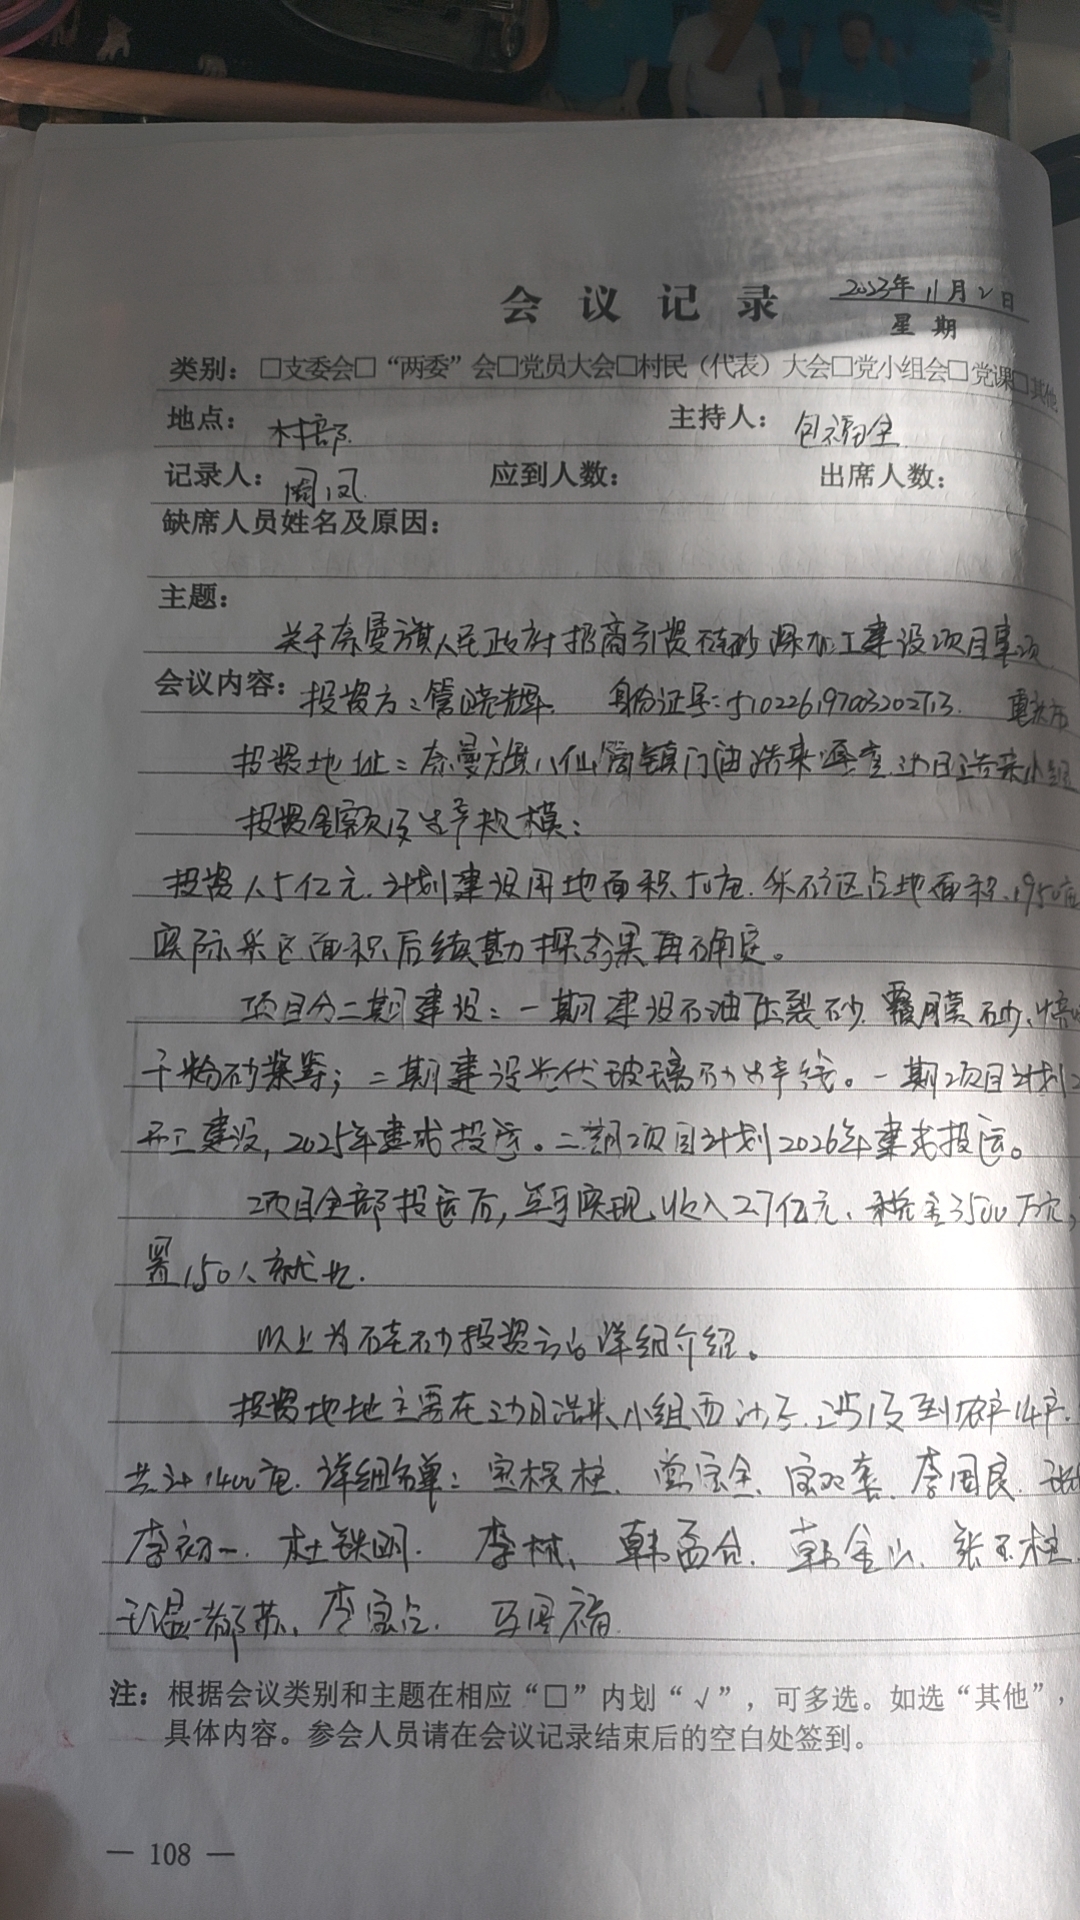 会议记录 2023年11月2日
星期
类别：□支委会□“两委”会□党员大会□村民（代表）大会□党小组会□党课□其他
地点：村部 主持人：包福全
记录人：周凤 应到人数： 出席人数：
缺席人员姓名及原因：
主题：
关于奈曼旗人民政府招商引资硅砂深加工建设项目事项
会议内容：投资方：管晓辉 身份证号： 重庆市
投资地址：奈曼旗八仙筒镇 小组
投资金额及生产规模：
投资人5亿元.计划建设用地面积50亩.采矿区占地面积1950亩
实际采区面积后续勘探结果再确定。
项目分二期建设：一期建设石油压裂砂.覆膜砂、
干粉砂浆等；二期建设光伏玻璃砂生产线。一期项目计划2
开工建设，2025年建成投运。二期项目计划2026年建成投运。
项目全部投运后，年实现收入2.7亿元、税金3500万元，
置150人就业.
以上为硅砂投资方的详细介绍。
投资地地主要在 小组西沙子.涉及到农户14户.
共计1400亩.详细名单： 李国良.
李初一.杜铁明.李林、韩孟仓.韩金山、张玉柱
李宝仓.
注：根据会议类别和主题在相应“□”内划“√”，可多选。如选“其他”，
具体内容。参会人员请在会议记录结束后的空白处签到。
— 108 —